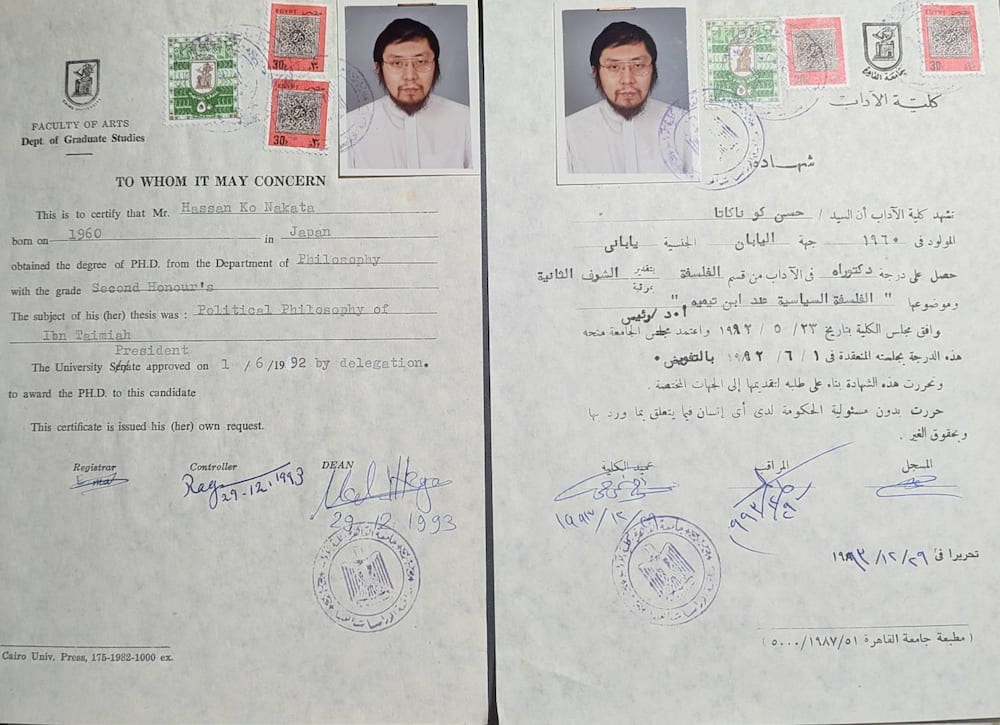 CAIRO UNIVERSITY
FACULTY OF ARTS
Dept. of Graduate Studies
EGYPT
30
EGYPT
30
TO WHOM IT MAY CONCERN
This is to certify that Mr. Hassan Ko Nakata
born on 1960 in Japan
obtained the degree of PH.D. from the Department of Philosophy
with the grade Second Honour's
The subject of his (her) thesis was : Political Philosophy of
Ibn Taimiah
President
The University Senate approved on 1 / 6 /1992 by delegation.
to award the PH.D. to this candidate
This certificate is issued his (her) own request.
Registrar Controller DEAN
29-12-1993
29-12 1993
Cairo Univ. Press, 175-1982-1000 ex.
جامعة القاهرة
كلية الآداب
شهادة
تشهد كلية الآداب أن السيد / حسن كو ناكاتا
المولود فى ١٩٦٠ جهة اليابان الجنسية يابانى
حصل على درجة دكتوراه فى الآداب من قسم الفلسفة بتقدير بمرتبة الشرف الثانية
وموضوعها " الفلسفة السياسية عند ابن تيميه "
أ.د./رئيس
وافق مجلس الكلية بتاريخ ٢٣ / ٥ / ١٩٩٢ واعتمد مجلس الجامعة منحه
هذه الدرجة بجلسته المنعقدة فى ١ / ٦ / ١٩٩٢ بالتفويض.
وتحررت هذه الشهادة بناء على طلبه لتقديمها إلى الجهات المختصة .
حررت بدون مسئولية الحكومة لدى أى إنسان فيما يتعلق بما ورد بها
وبحقوق الغير .
المسجل المراقب عميد الكلية
تحريرا فى ٢٩/١٢/١٩٩٣
( مطبعة جامعة القاهرة ٥١/١٩٨٧/٥٠٠٠ )